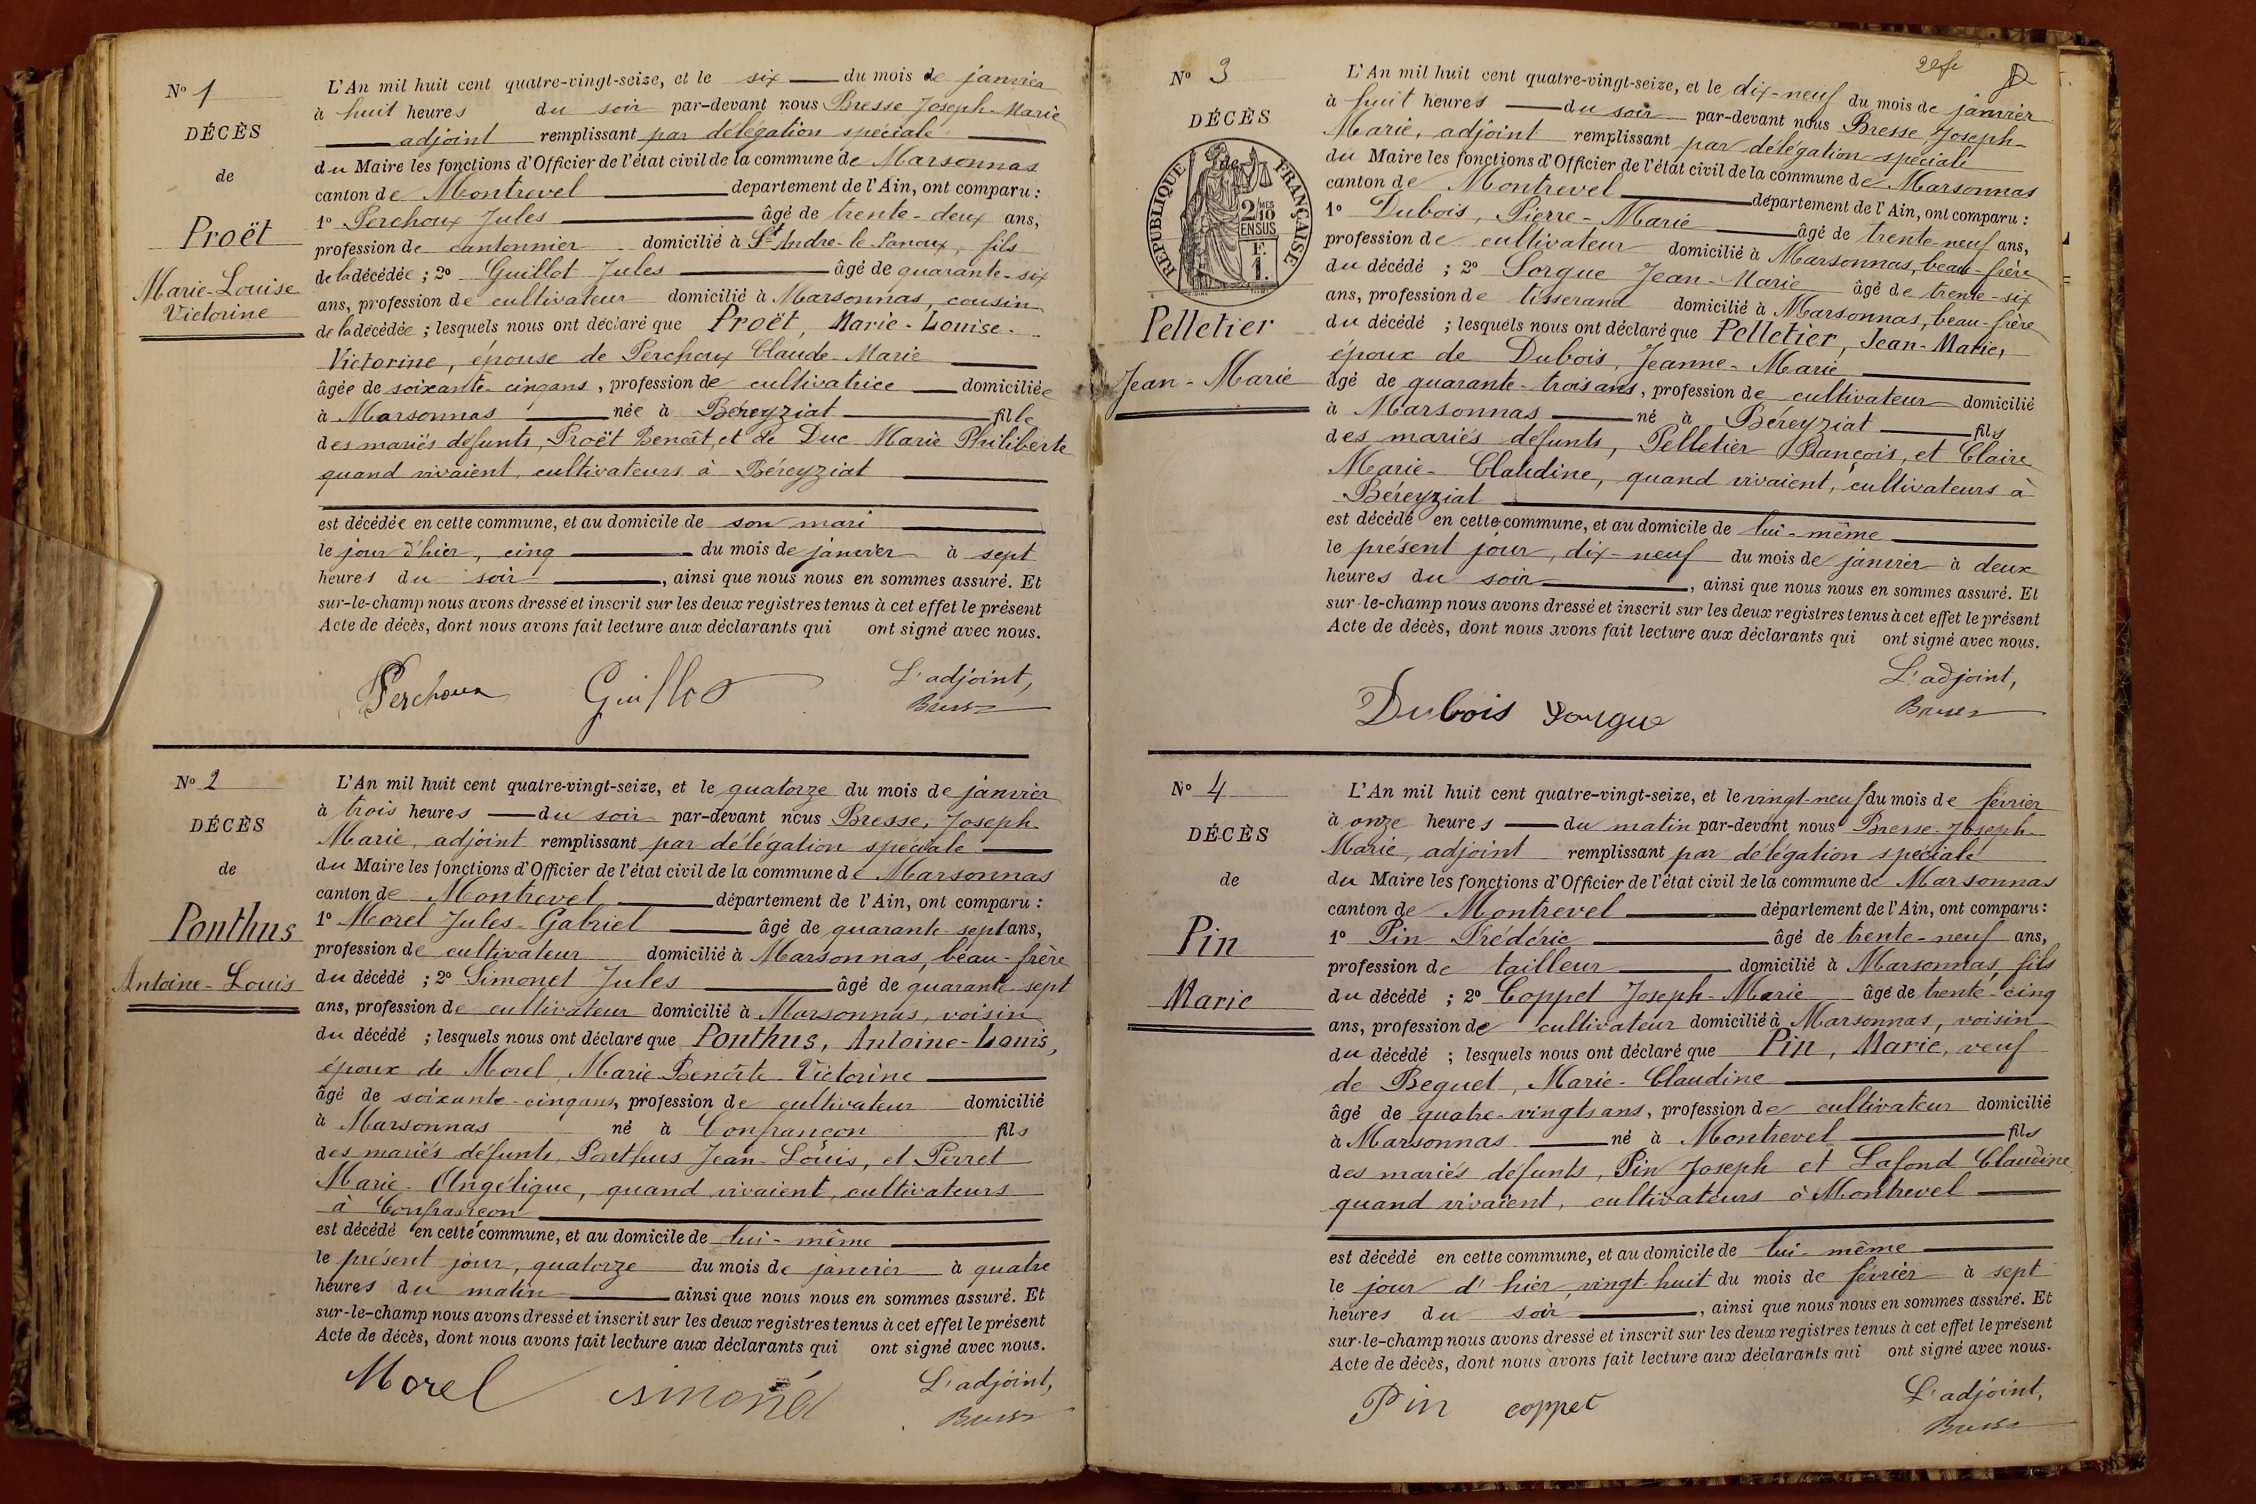 Nº 1
DÉCÈS
de
Proët
Marie-Louise
Victorine
L'An mil huit cent quatre-vingt-seize, et le six du mois de janvier
à huit heures du soir par-devant nous Bresse Joseph-Marie
adjoint remplissant par délégation spéciale
du Maire les fonctions d'Officier de l'état civil de la commune de Marsonnas
canton de Montrevel département de l'Ain, ont comparu :
1º Perchoux Jules âgé de trente-deux ans,
profession de cantonnier domicilié à St André-le-Panoux, fils
de la décédée ; 2º Guillot Jules âgé de quarante-six
ans, profession de cultivateur domicilié à Marsonnas, cousin
de la décédée ; lesquels nous ont déclaré que Proët, Marie-Louise-
Victorine, épouse de Perchoux Claude-Marie
âgée de soixante-cinq ans, profession de cultivatrice domiciliée
à Marsonnas née à Béreyziat fille
des mariés défunts, Proët Benoît, et de Duc Marie Philiberte
quand vivaient, cultivateurs à Béreyziat
est décédée en cette commune, et au domicile de son mari
le jour d'hier, cinq du mois de janvier à sept
heures du soir, ainsi que nous nous en sommes assuré. Et
sur-le-champ nous avons dressé et inscrit sur les deux registres tenus à cet effet le présent
Acte de décès, dont nous avons fait lecture aux déclarants qui ont signé avec nous.
L'adjoint,
Perchoux Guillot Bresse
Nº 2
DÉCÈS
de
Ponthus
Antoine-Louis
L'An mil huit cent quatre-vingt-seize, et le quatorze du mois de janvier
à trois heures du soir par-devant nous Bresse, Joseph-
Marie, adjoint remplissant par délégation spéciale
du Maire les fonctions d'Officier de l'état civil de la commune de Marsonnas
canton de Montrevel département de l'Ain, ont comparu :
1º Morel Jules-Gabriel âgé de quarante-sept ans,
profession de cultivateur domicilié à Marsonnas, beau-frère
du décédé ; 2º Simonet Jules âgé de quarante-sept
ans, profession de cultivateur domicilié à Marsonnas, voisin
du décédé ; lesquels nous ont déclaré que Ponthus, Antoine-Louis,
époux de Morel, Marie Benoîte-Victorine
âgé de soixante-cinq ans, profession de cultivateur domicilié
à Marsonnas né à Confrançon fils
des mariés défunts, Ponthus Jean-Louis, et Perret
Marie-Angélique, quand vivaient, cultivateurs
à Confrançon
est décédé en cette commune, et au domicile de lui-même
le présent jour, quatorze du mois de janvier à quatre
heures du matin ainsi que nous nous en sommes assuré. Et
sur-le-champ nous avons dressé et inscrit sur les deux registres tenus à cet effet le présent
Acte de décès, dont nous avons fait lecture aux déclarants qui ont signé avec nous.
L'adjoint,
Morel Simonet Bresse
Nº 3
DÉCÈS
de
RÉPUBLIQUE FRANÇAISE
2/10 MES
EN SUS
F.
1.
Pelletier
Jean-Marie
L'An mil huit cent quatre-vingt-seize, et le dix-neuf du mois de janvier
à huit heures du soir par-devant nous Bresse Joseph-
Marie, adjoint remplissant par délégation spéciale
du Maire les fonctions d'Officier de l'état civil de la commune de Marsonnas
canton de Montrevel département de l'Ain, ont comparu :
1º Dubois, Pierre-Marie âgé de trente-neuf ans,
profession de cultivateur domicilié à Marsonnas, beau-frère
du décédé ; 2º Sorgue Jean-Marie âgé de trente-six
ans, profession de tisserand domicilié à Marsonnas, beau-frère
du décédé ; lesquels nous ont déclaré que Pelletier, Jean-Marie,
époux de Dubois, Jeanne-Marie
âgé de quarante-trois ans, profession de cultivateur domicilié
à Marsonnas né à Béreyziat fils
des mariés défunts, Pelletier François, et Claire
Marie-Claudine, quand vivaient, cultivateurs à
Béreyziat
est décédé en cette commune, et au domicile de lui-même
le présent jour, dix-neuf du mois de janvier à deux
heures du soir, ainsi que nous nous en sommes assuré. Et
sur-le-champ nous avons dressé et inscrit sur les deux registres tenus à cet effet le présent
Acte de décès, dont nous avons fait lecture aux déclarants qui ont signé avec nous.
L'adjoint,
Dubois Sorgue Bresse
Nº 4
DÉCÈS
de
Pin
Marie
L'An mil huit cent quatre-vingt-seize, et le vingt-neuf du mois de février
à onze heures du matin par-devant nous Bresse Joseph-
Marie, adjoint remplissant par délégation spéciale
du Maire les fonctions d'Officier de l'état civil de la commune de Marsonnas
canton de Montrevel département de l'Ain, ont comparu :
1º Pin Frédéric âgé de trente-neuf ans,
profession de tailleur domicilié à Marsonnas, fils
du décédé ; 2º Coppet Joseph-Marie âgé de trente-cinq
ans, profession de cultivateur domicilié à Marsonnas, voisin
du décédé ; lesquels nous ont déclaré que Pin, Marie, veuf
de Beguet, Marie-Claudine
âgé de quatre-vingts ans, profession de cultivateur domicilié
à Marsonnas né à Montrevel fils
des mariés défunts, Pin Joseph et Lafond Claudine
quand vivaient, cultivateurs à Montrevel
est décédé en cette commune, et au domicile de lui-même
le jour d'hier, vingt-huit du mois de février à sept
heures du soir, ainsi que nous nous en sommes assuré. Et
sur-le-champ nous avons dressé et inscrit sur les deux registres tenus à cet effet le présent
Acte de décès, dont nous avons fait lecture aux déclarants qui ont signé avec nous.
L'adjoint,
Pin coppet Bresse